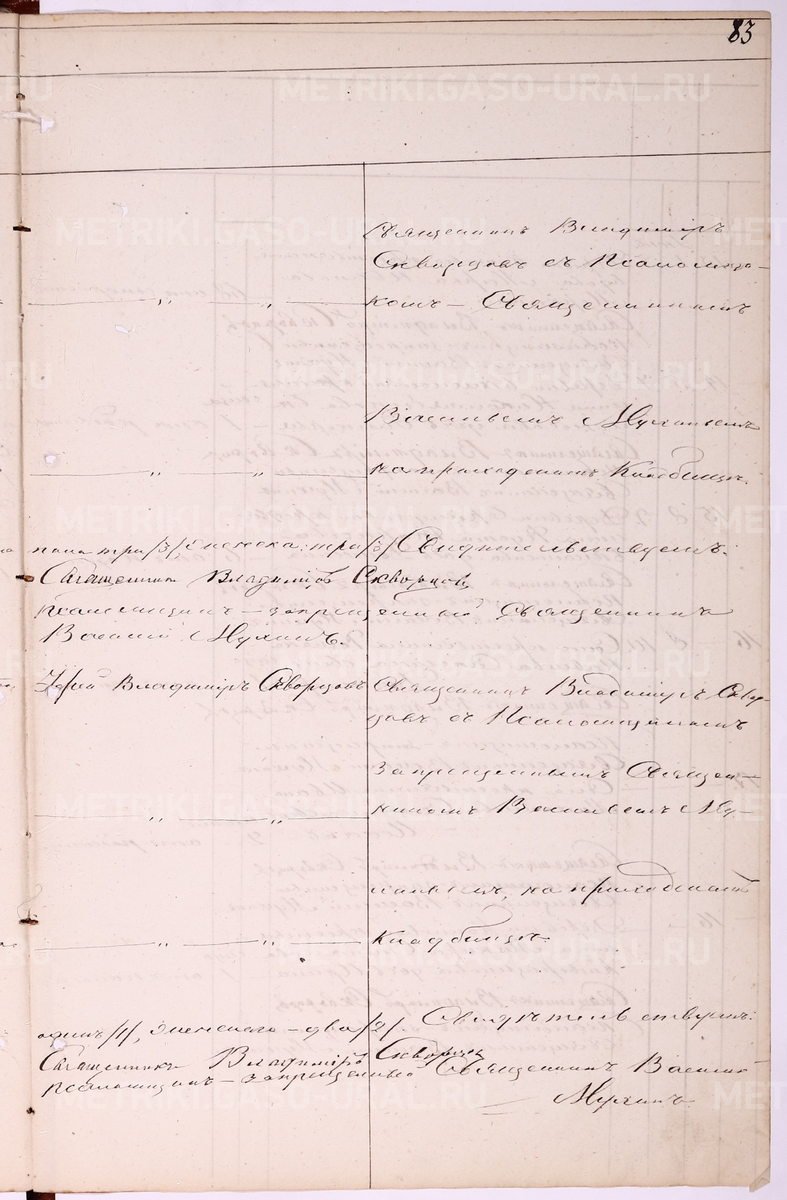 83
METRIKI.GASO-URAL.RU
Священникъ Владиміръ
Скворцовъ съ Псаломщи-
комъ – Священникомъ
— „ — „ —
Василіемъ Мухинымъ
на приходскомъ Кладбищѣ.
— „ — „ —
пола три /3/ женска: три /3/ Свидѣтельствуемъ:
Священникъ Владиміръ Скворцовъ
Псаломщикъ – запрещенный Священникъ
Василій Мухинъ.
Іерей Владиміръ Скворцовъ
Священникъ Владиміръ Сквор-
цовъ съ Псаломщикомъ
запрещеннымъ Священ-
никомъ Василіемъ Му-
— „ — „ —
хинымъ, на приходскомъ
кладбищѣ
— „ — „ —
одинъ /1/, женскаго – два /2/. Свидѣтельствуемъ:
Священникъ Владиміръ Скворцовъ
Псаломщикъ – запрещенный Священникъ Василій
Мухинъ